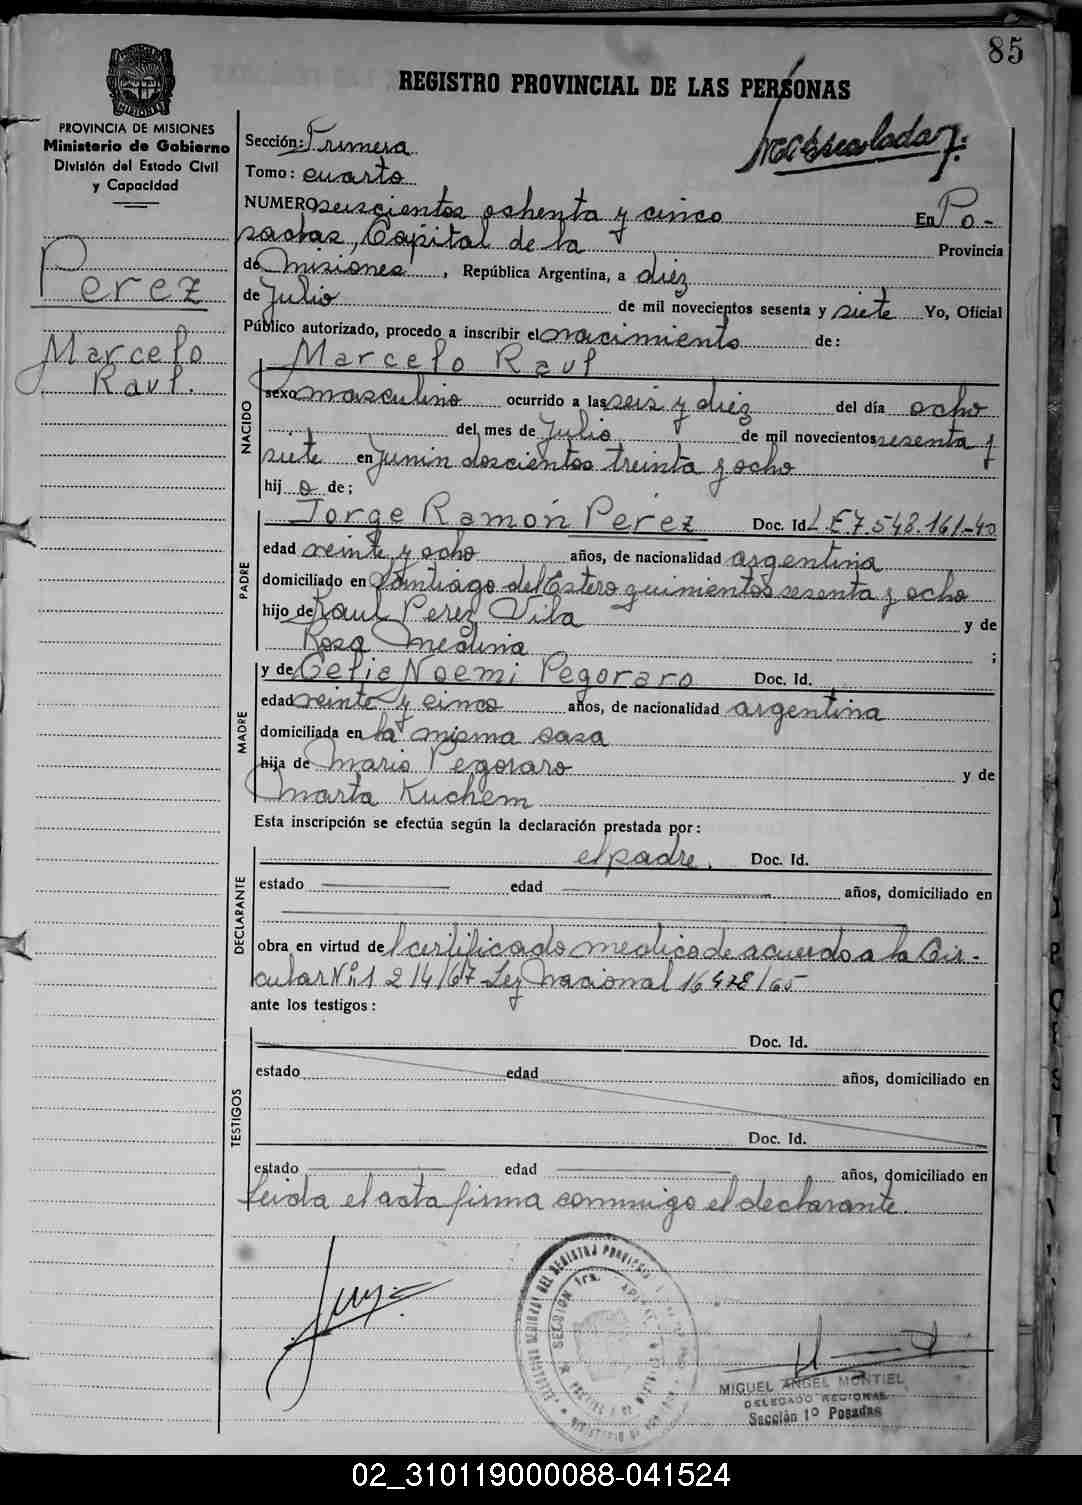 85
REGISTRO PROVINCIAL DE LAS PERSONAS
PROVINCIA DE MISIONES
Ministerio de Gobierno
División del Estado Civil
y Capacidad
Sección: Primera
Tomo: cuarto
NUMERO seiscientos ochenta y cinco En Po-
sadas, Capital de la Provincia
de Misiones, República Argentina, a diez
de Julio de mil novecientos sesenta y siete Yo, Oficial
Público autorizado, procedo a inscribir el nacimiento de:
Perez
Marcelo
Raul.
NACIDO
Marcelo Raul
sexo masculino ocurrido a las seis y diez del día ocho
del mes de Julio de mil novecientos sesenta y
siete en Junin doscientos treinta y ocho
hij o de;
PADRE
Jorge Ramón Pérez Doc. Id. L.E 7.548.161-40
edad veinte y ocho años, de nacionalidad argentina
domiciliado en Santiago del Estero quinientos sesenta y ocho
hijo de Raul Perez Vila y de
Rosa Medina ;
MADRE
y de Celie Noemi Pegoraro Doc. Id.
edad veinte y cinco años, de nacionalidad argentina
domiciliada en la misma casa
hija de Mario Pegoraro y de
Marta Kuchem
Esta inscripción se efectúa según la declaración prestada por:
DECLARANTE
el padre. Doc. Id.
estado edad años, domiciliado en
obra en virtud del certificado medico de acuerdo a la Cir-
cular Nº 12/4/67 Ley Nacional 16478/65
ante los testigos:
TESTIGOS
Doc. Id.
estado edad años, domiciliado en
Doc. Id.
estado edad años, domiciliado en
Leida el acta firma conmigo el declarante.
SECCION 1ra.
MIGUEL ANGEL MONTIEL
DELEGADO REGIONAL
Sección 1º Posadas
02_310119000088-041524